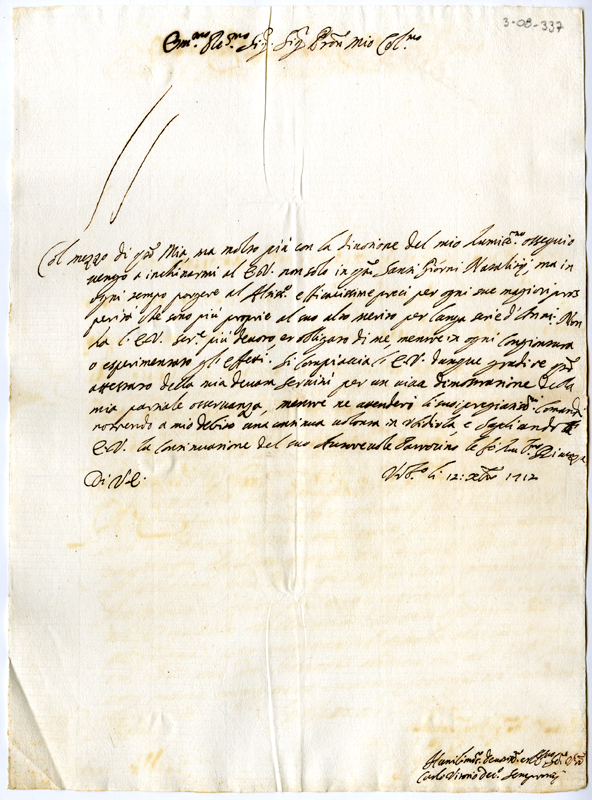 3-08-337
Em.mo Re.mo Sig. Sig. Pron. mio Col.mo
Col mezzo di q.ta Mia, ma molto più con la divotione del mio humiliss.mo ossequio
vengo a inchinarmi al E.V. non solo in q.ti Santi Giorni Natalizij, ma in
ogni tempo porgere al Altiss. efficacissime preci per ogni sue magiori pros
perità che sono più proprie al suo alto merito per lunga serie d'Anni. Non
ha l'E.V. ser.e più devoto, et obligato di me, mentre in ogni Congiontura
o esperimentato gli effetti. Si Compiaccia l'E.V. dunque gradire q.to
attestato della mia devota servitù per un viva dimostratione della
mia partiale osservanza, mentre ne attenderò li suoi pregiatiss. Comandi
a mio debito una continua in
E.V. la Continuatione del suo Autorevole Patrocinio le fò hu.ma Riverenza
Di V.E. Vit.bo li 12: Xbre 1712
Humilissimo devotiss. et obl.mo
Carlo